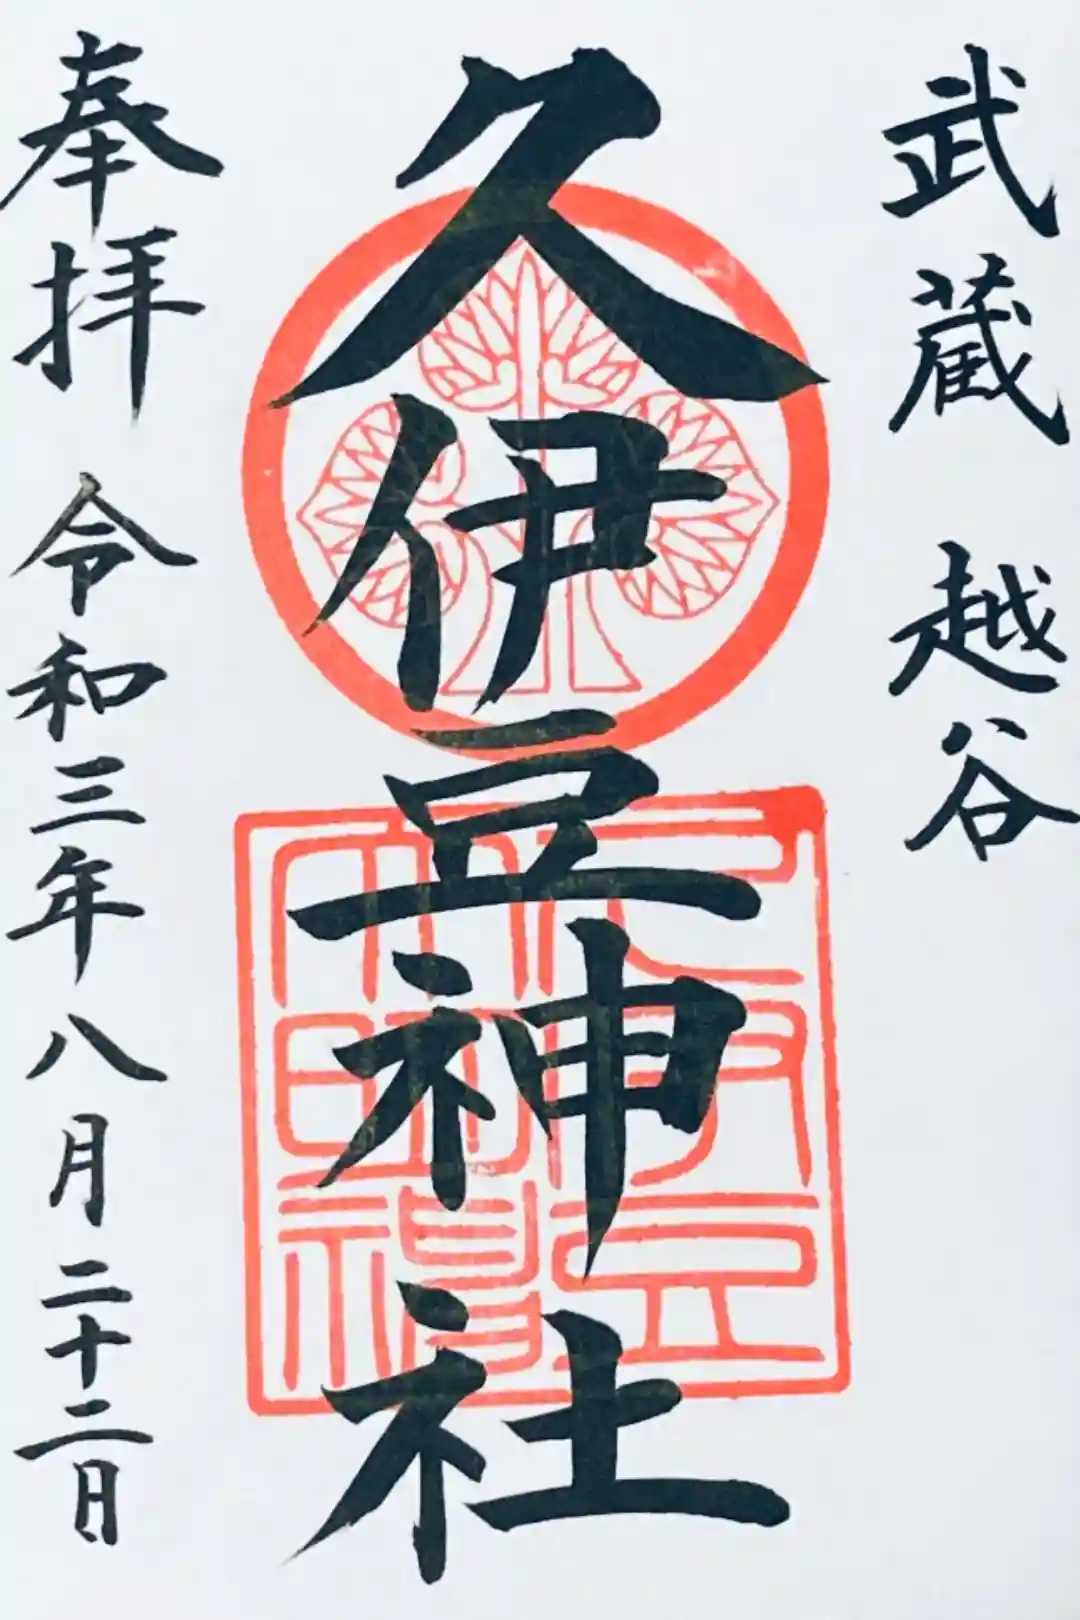 武蔵 越谷
久伊豆神社
奉拝 令和三年八月二十二日